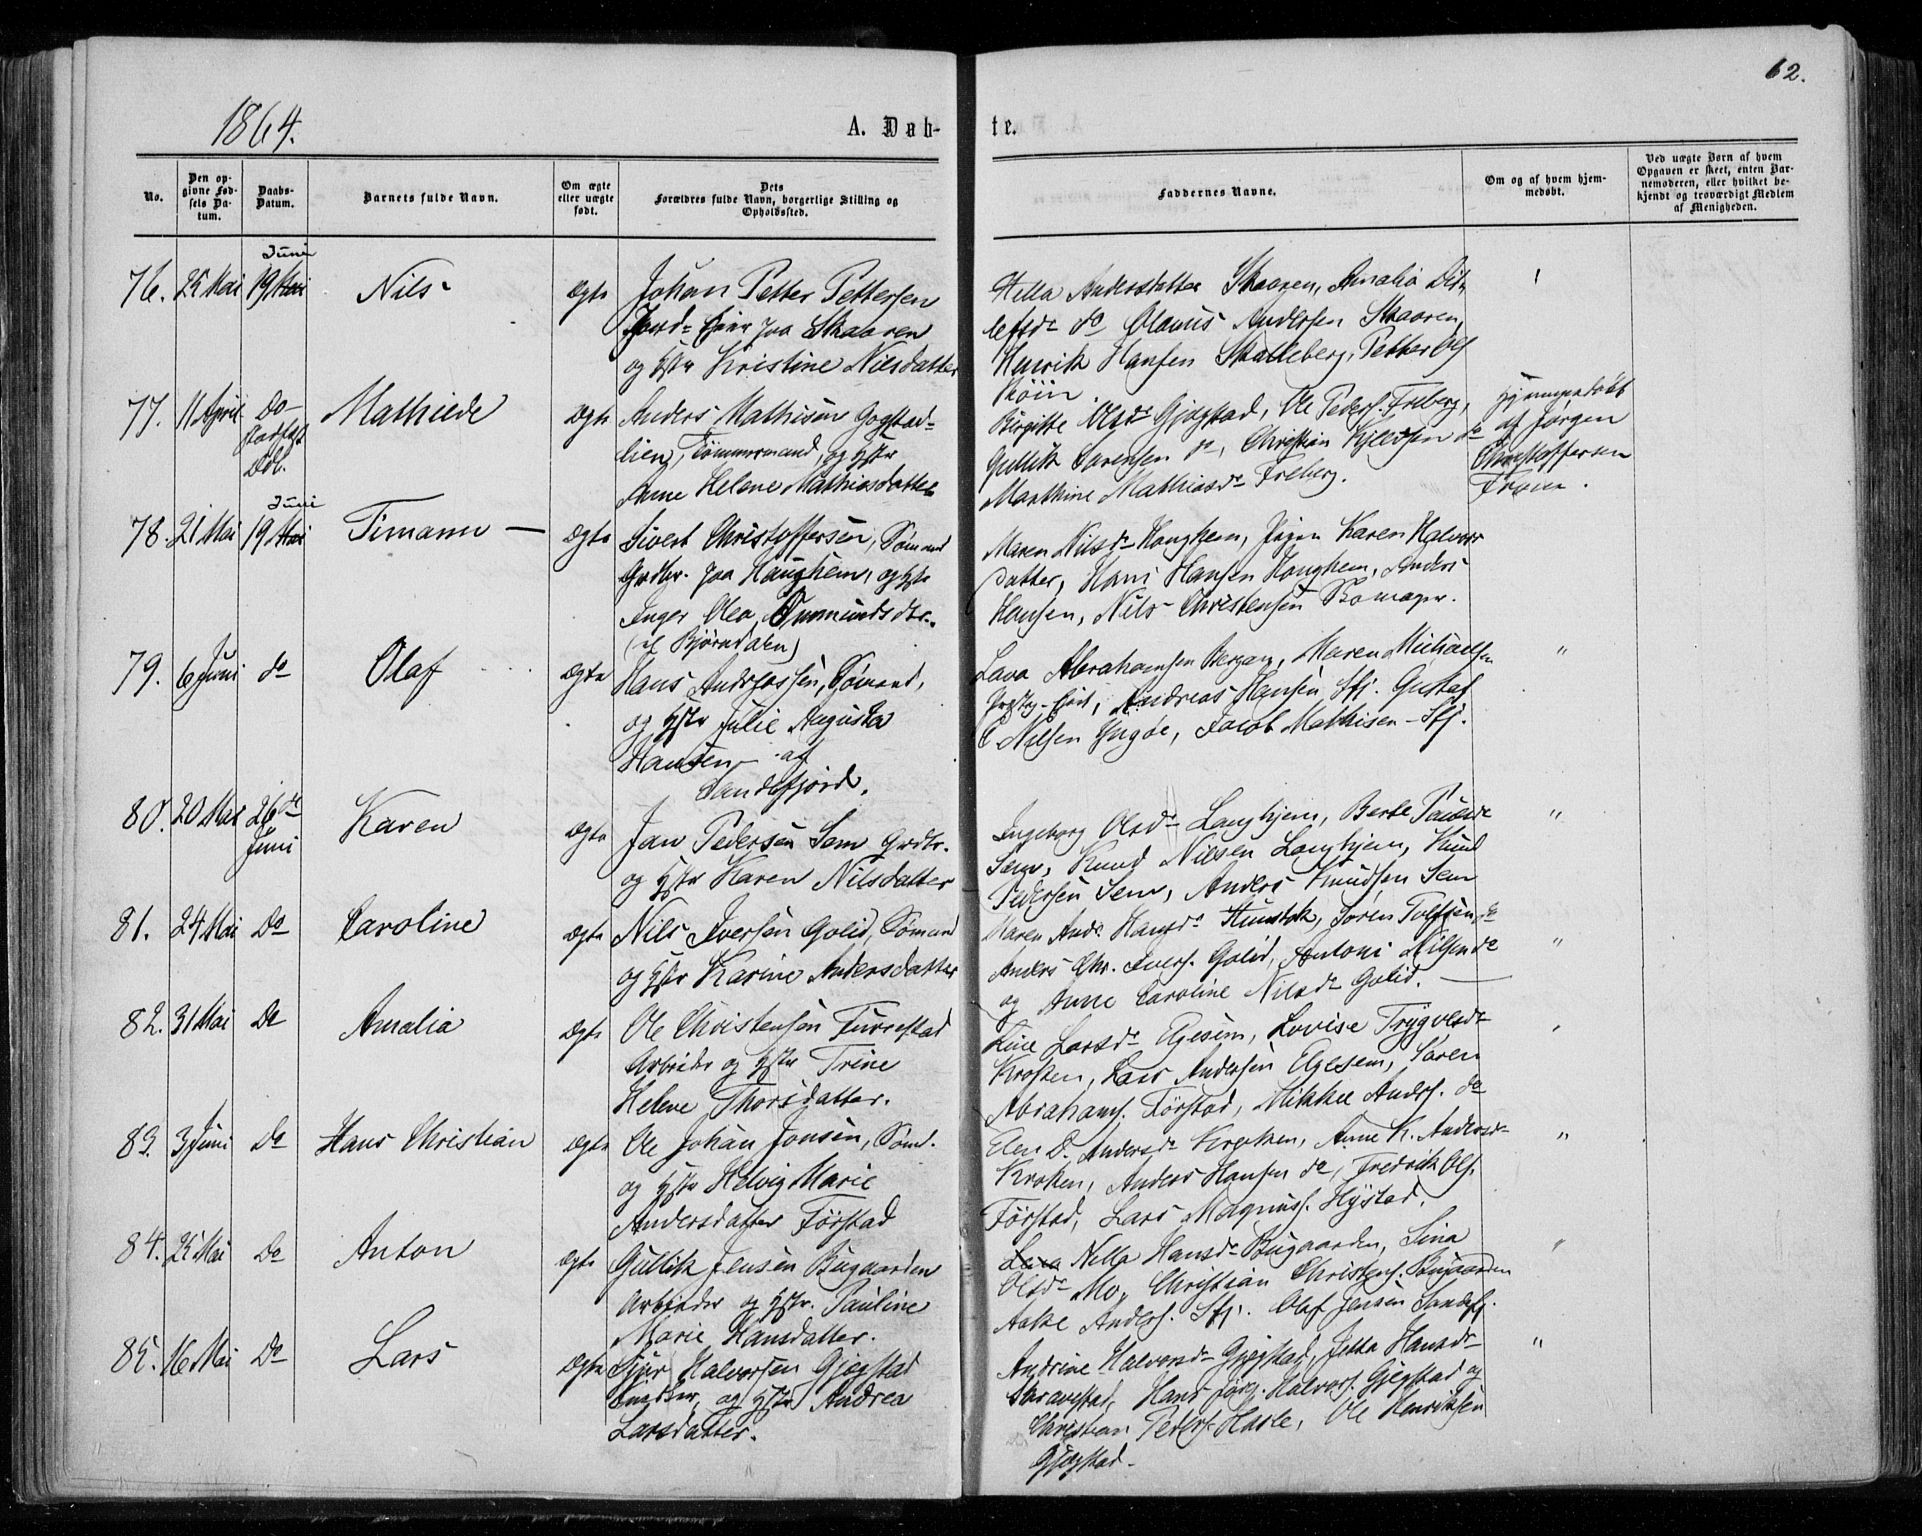 62.
1864.
A. Døb-
te.
No.
Den op-
givne Fød-
sels Da-
tum.
Daabs-
Datum.
Barnets fulde Navn.
Om ægte
eller uægte
født.
Dets
Forældres fulde Navn, borgerlige Stilling og
Opholdssted.
Faddernes Navne.
Om og af hvem hjem-
medøbt.
Ved uægte Børn af hvem
Opgaven er skeet, enten Bar-
nemoderen, eller hvilket be-
kjendt og troværdigt Medlem
af Menigheden.
76. 25 Mai
Juni
19 Mai
Nils
ægte
Johan Petter Pettersen
paa Skaaren
og Hstr Kristine Nilsdatter
Hella Andersdatter Skaaren, Amalia Det-
lefsd do Olavus Andersen Skaaren,
Henrik Hansen Skalleberg, Petter Ols
77. 11 April
Do
stadfæst
Dåb.
Mathilde
ægte
Anders Mathisen Gogstad-
lien, Tømmermand, og Hstr
Anne Helene Mathiasdatter
Birgitte Olsd Gjøgstad, Ole Peders. Freberg,
Gullik Sørensen do, Christian do
Marthine Mathiasd Freberg.
Hjemmedøbt
af Jørgen
Christoffersen
78. 21 Mai
Juni
19 Mai
Timann —
ægte
Sivert Christoffersen, Sømand
Grdbr. paa Haughem, og Hstr
Inger Olea Ommundsdtr.
(af Bjørndalen)
Maren Nilsd Haughem, Karen Halvors
datter, Hans Hansen Haughem, Anders
Hansen, Nils Christensen
79. 6 Juni
do
Olaf
ægte
Hans Andreassen, Sømand,
og Hstr Julie Augusta
Hansen af
Sandefjord.
Lava Abrahamsen Bergan, Maren Michaelsen
Andreas Hansen Sfj. Gustaf
Nilsen Jacob Mathisen Sfj.
"
80. 20 Mai
26de
Juni
Karen
ægte
Jan Pedersen Sem Grdbr.
og Hstr Karen Nilsdatter
Ingeborg Olsd Langhjem, Berte Paulsd
Sem, Knud Nilsen Langhjem, Knud
Pedersen Sem, Anders Knudsen Sem
"
81. 24 Mai
Do
Caroline
ægte
Nils Iversen Golid, Sømand
og Hstr Karine Andersdatter
Maren And. Hansd Hunstok, Søren Tolfsen do
Anders Chr. Ivers. Golid, Antoni Nilsen do
og Anne Caroline Nilsd Golid.
"
82. 31 Mai
Do
Amalia
ægte
Ole Christensen Furrestad
Arbeider og Hstr Trine
Helene Thorsdatter.
Line Larsd Egesem, Lovise Trygvesd
Krossen, Lars Andersen Egesem, Søren
Abrahams. Førstad, Mikkel Anders. do
83. 3 Juni
Do
Hans Christian
ægte
Ole Johan Jonsen, Sømd.
og Hstr Helvig Marie
Andersdatter Førstad
Elen D. Andersd Krøken, Anne K. Andersd
Kroken, Anders Hansen do, Fredrik Ols.
Førstad, Lars Magnuss. Hystad.
"
84. 25 Mai
Do
Anton
ægte
Gullik Jensen Bugaarden
Arbeider og Hstr. Pauline
Marie Hansdatter.
Nella Hansd Bugaarden, Sina
Olsd Mo, Christian Christens. Bugaarden
Aake Anders. Sfj. Olaf Jensen Sandefj.
"
85. 16 Mai
Do
Lars
ægte
Iver Halvorsen Gjøgstad
Snedker, og Hstr Andrea
Larsdatter.
Andrine Halvorsd Gjøgstad, Jetta Hansd
Skravestad, Hans Jørg. Halvors. Gjøgstad og
Christian Peders. Hasle, Ole Henriksen
Gjøgstad
"